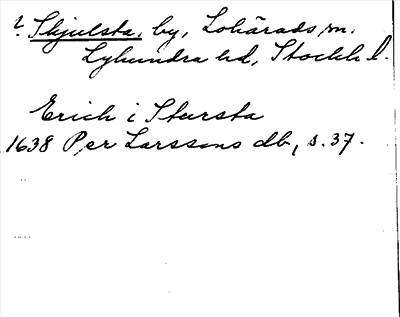 ? Skjulsta, by, Lohärads sn.
Lyhundra hd, Stockh. l.
Erich i Stursta
1638 Per Larssons db, s. 37.